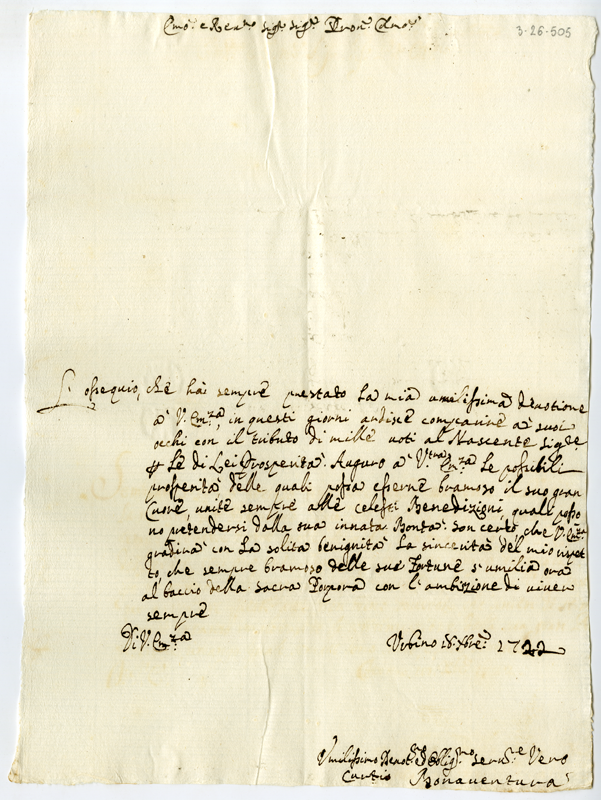 Em.o e Rev.mo Sig.r Sig.r Pron. Colmo.
3-26-505
L'ossequio, che hà sempre prestato la mia umilissima devotione
à V. Em.za, in questi giorni ardisce comparire ai suoi
occhi con il tributo di mille voti al Nascente Sig.re
p Le di Lei Prosperità. Auguro à V.tra Em.za Le possibili
prosperità delle quali possa esserne bramoso il suo gran
Cuore unite sempre alle celesti Benedizioni, quali posso
no pretendersi dalla sua innata Bontà. Son certo, che V. Em.
gradirà con La solita benignità La sincerità del mio rispet
to, che sempre bramoso delle sue Fortune s'umilia ora
al baccio della sacra Porpora con l'ambizione di viver
sempre
Di V. Em.za
Urbino 18. Xbre. 1722
Umilissimo Devot.mo ed Oblig.mo serv.re Vero
Curtio Bonaventura